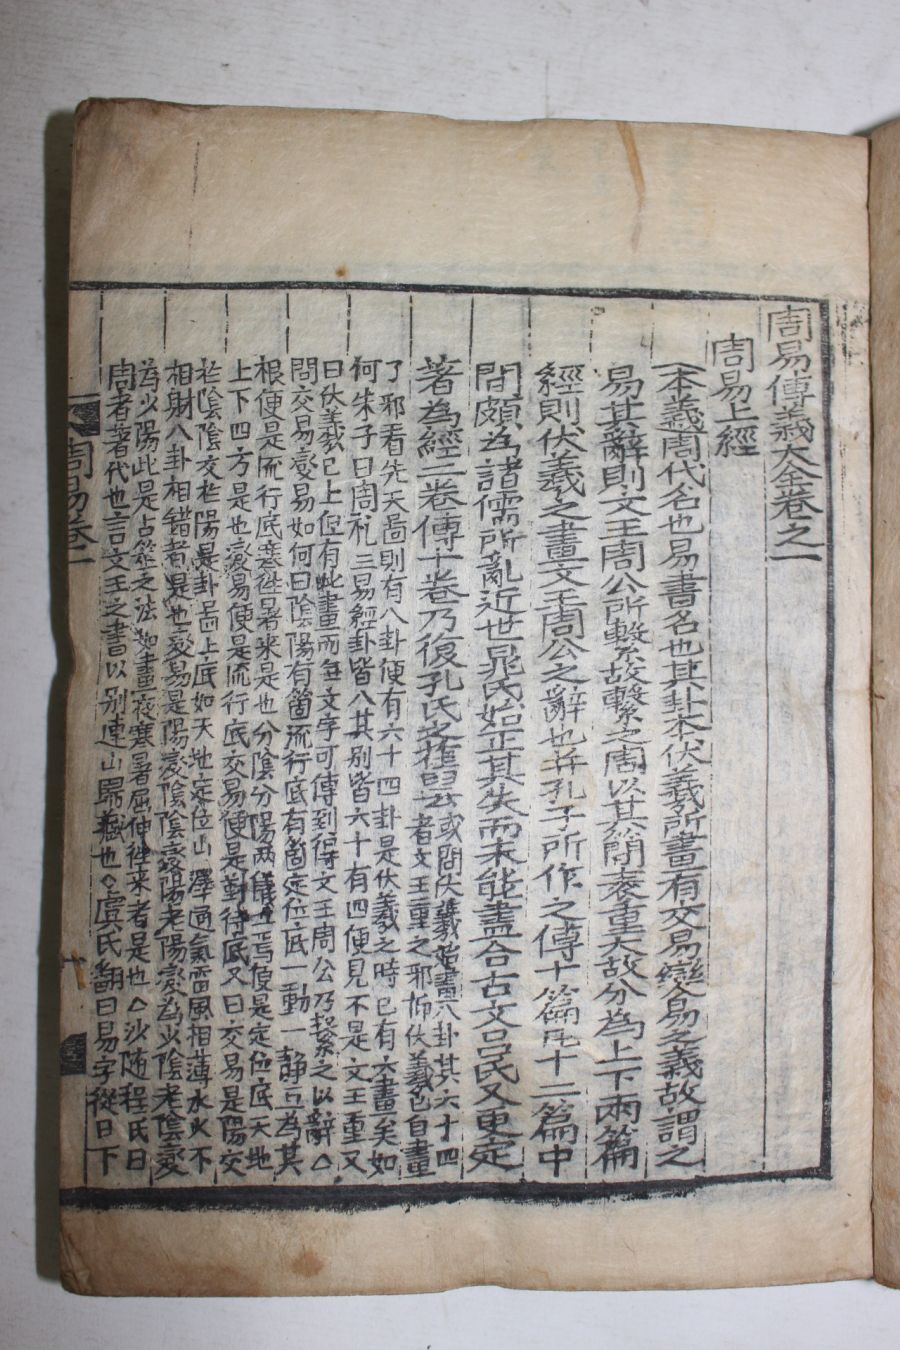 周易傳義大全卷之一
周易上經
本義周代名也易書名也其卦本伏羲所畫有交易變易之義故謂之
易其辭則文王周公所繫故繫之周以其簡袠重大故分為上下兩篇
經則伏羲之畫文王周公之辭也并孔子所作之傳十篇凡十二篇中
間頗為諸儒所亂近世晁氏始正其失而未能盡合古文呂氏又更定
著為經二卷傳十卷乃復孔氏之舊云
或問伏羲始畫八卦其六十四
者文王重之邪抑伏羲已自畫
了邪看先天啚則有八卦便有六十四卦是伏羲之時已有六畫矣如
何朱子曰周礼三易經卦皆八其別皆六十有四便見不是文王重又
曰伏羲已上但有此畫而無文字可傳到得文王周公乃繫之以辭△
問交易變易如何曰陰陽有箇流行底有箇定位底一動一靜互為其
根便是流行底寒徃暑来是也分陰分陽两儀立焉便是定位底天地
上下四方是也變易便是流行底交易便是對待底又曰交易是陽交
於陰陰交於陽是卦啚上底如天地定位山澤通氣雷風相薄水火不
相射八卦相錯者是也變易是陽變陰陰變陽老陽變為少陰老陰變
為少陽此是占筮之法如晝夜寒暑屈伸徃来者是也△沙随程氏曰
周者著代也言文王之書以別連山歸藏也△虞氏翻曰易字從日下
周易卷一